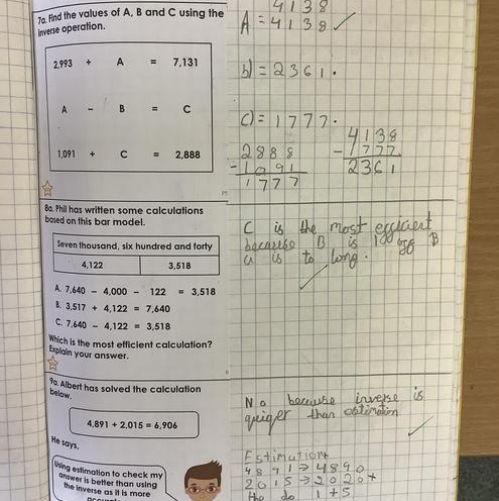 7a. Find the values of A, B and C using the
inverse operation.
2,993 + A = 7,131
A - B = C
1,091 + C = 2,888
4138
A = 4138
b) = 2361.
c) = 1777.
2888
- 1091
1777
4138
- 1777
2361
8a. Phil has written some calculations
based on this bar model.
Seven thousand, six hundred and forty
4,122 3,518
A. 7,640 - 4,000 - 122 = 3,518
B. 3,517 + 4,122 = 7,640
C. 7,640 - 4,122 = 3,518
Which is the most efficient calculation?
Explain your answer.
C is the most efficient
because B is 1 off B
a is to long.
9a. Albert has solved the calculation
below.
4,891 + 2,015 = 6,906
He says,
Using estimation to check my
answer is better than using
the inverse as it is more
No because inverse is
than estimation
Estimation
4891 → 4890
2015 → 2020 +